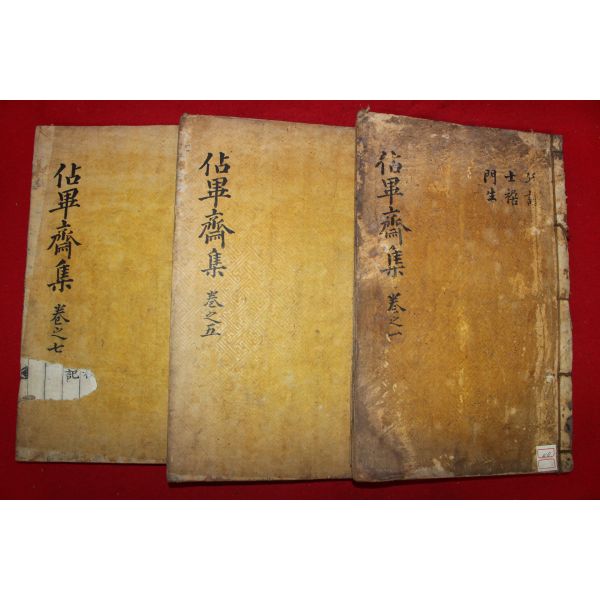 士禍
門生
佔畢齋集 卷之一
佔畢齋集 卷之五
佔畢齋集 卷之七
記